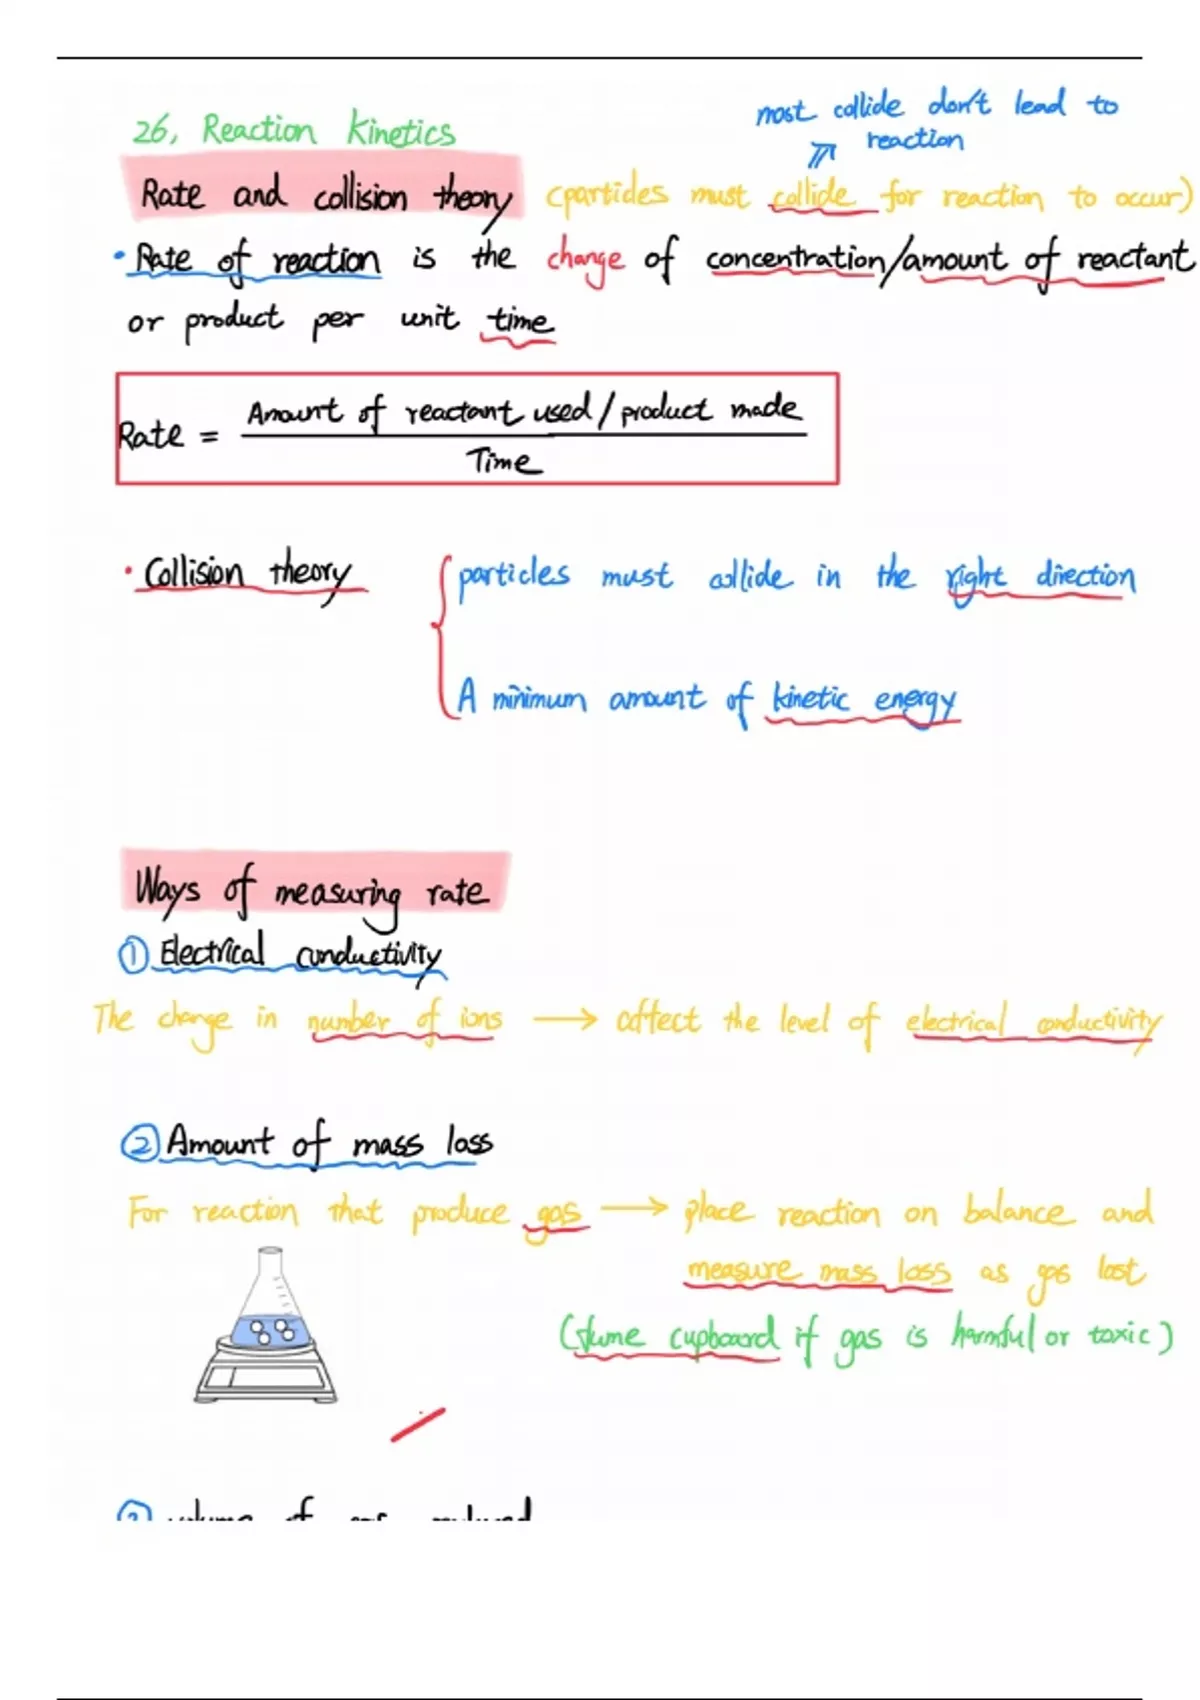 most collide don't lead to
reaction
26, Reaction Kinetics
Rate and collision theory (particles must collide for reaction to occur)
• Rate of reaction is the change of concentration/amount of reactant
or product per unit time
Rate = Amount of reactant used / product made
Time
• Collision theory
particles must collide in the right direction
A minimum amount of kinetic energy
Ways of measuring rate
① Electrical conductivity
The change in number of ions → affect the level of electrical conductivity
② Amount of mass loss
For reaction that produce gas → place reaction on balance and
measure mass loss as gas lost
(fume cupboard if gas is harmful or toxic)
volume of gas